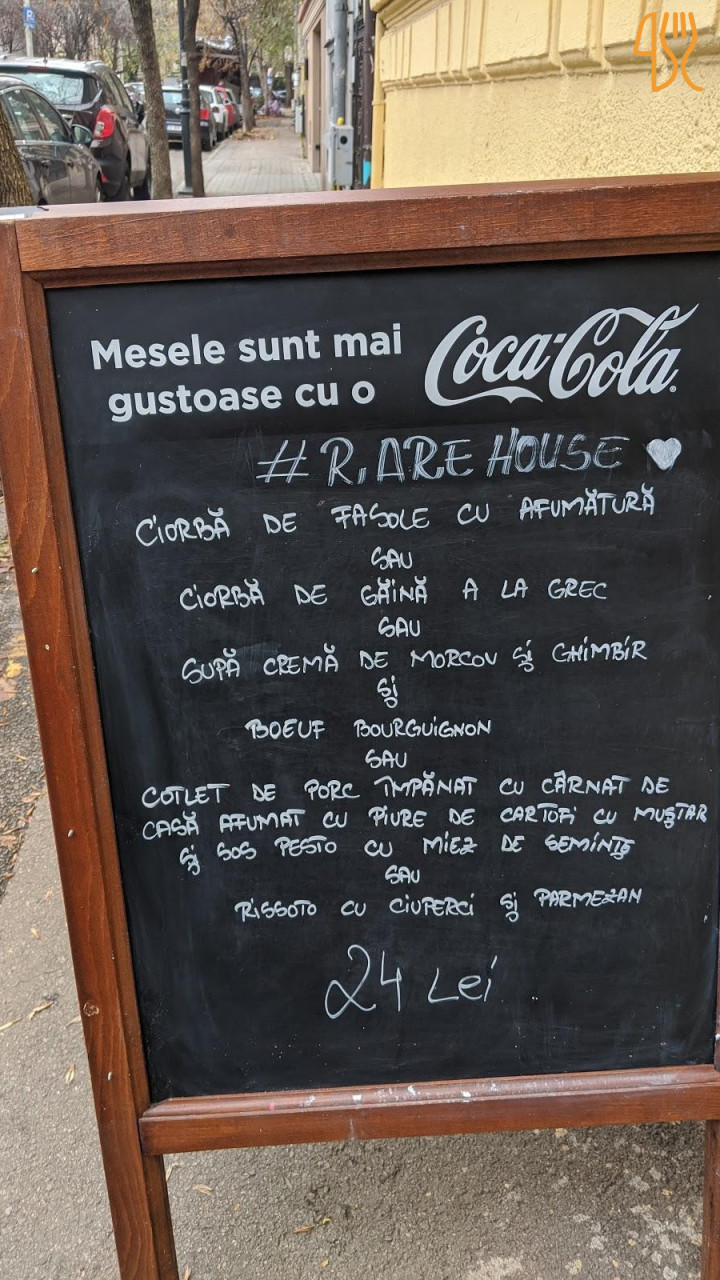 Mesele sunt mai
gustoase cu o
Coca-Cola
#R,ARE HOUSE
CIORBĂ DE FASOLE CU AFUMĂTURĂ
SAU
CIORBĂ DE GĂINĂ A LA GREC
SAU
SUPĂ CREMĂ DE MORCOV ȘI GHIMBIR
ȘI
BOEUF BOURGUIGNON
SAU
COTLET DE PORC ÎMPĂNAT CU CÂRNAT DE
CASĂ AFUMAT CU PIURE DE CARTOFI CU MUȘTAR
ȘI SOS PESTO CU MIEZ DE SEMINȚE
SAU
RISSOTO CU CIUPERCI ȘI PARMEZAN
24 Lei